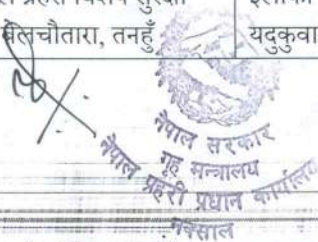 प्रहरी विशेष सुरक्षा
बेलचौतारा, तनहुँ
यदुकुवा
नेपाल सरकार
गृह मन्त्रालय
नेपाल प्रहरी प्रधान कार्यालय
नक्साल